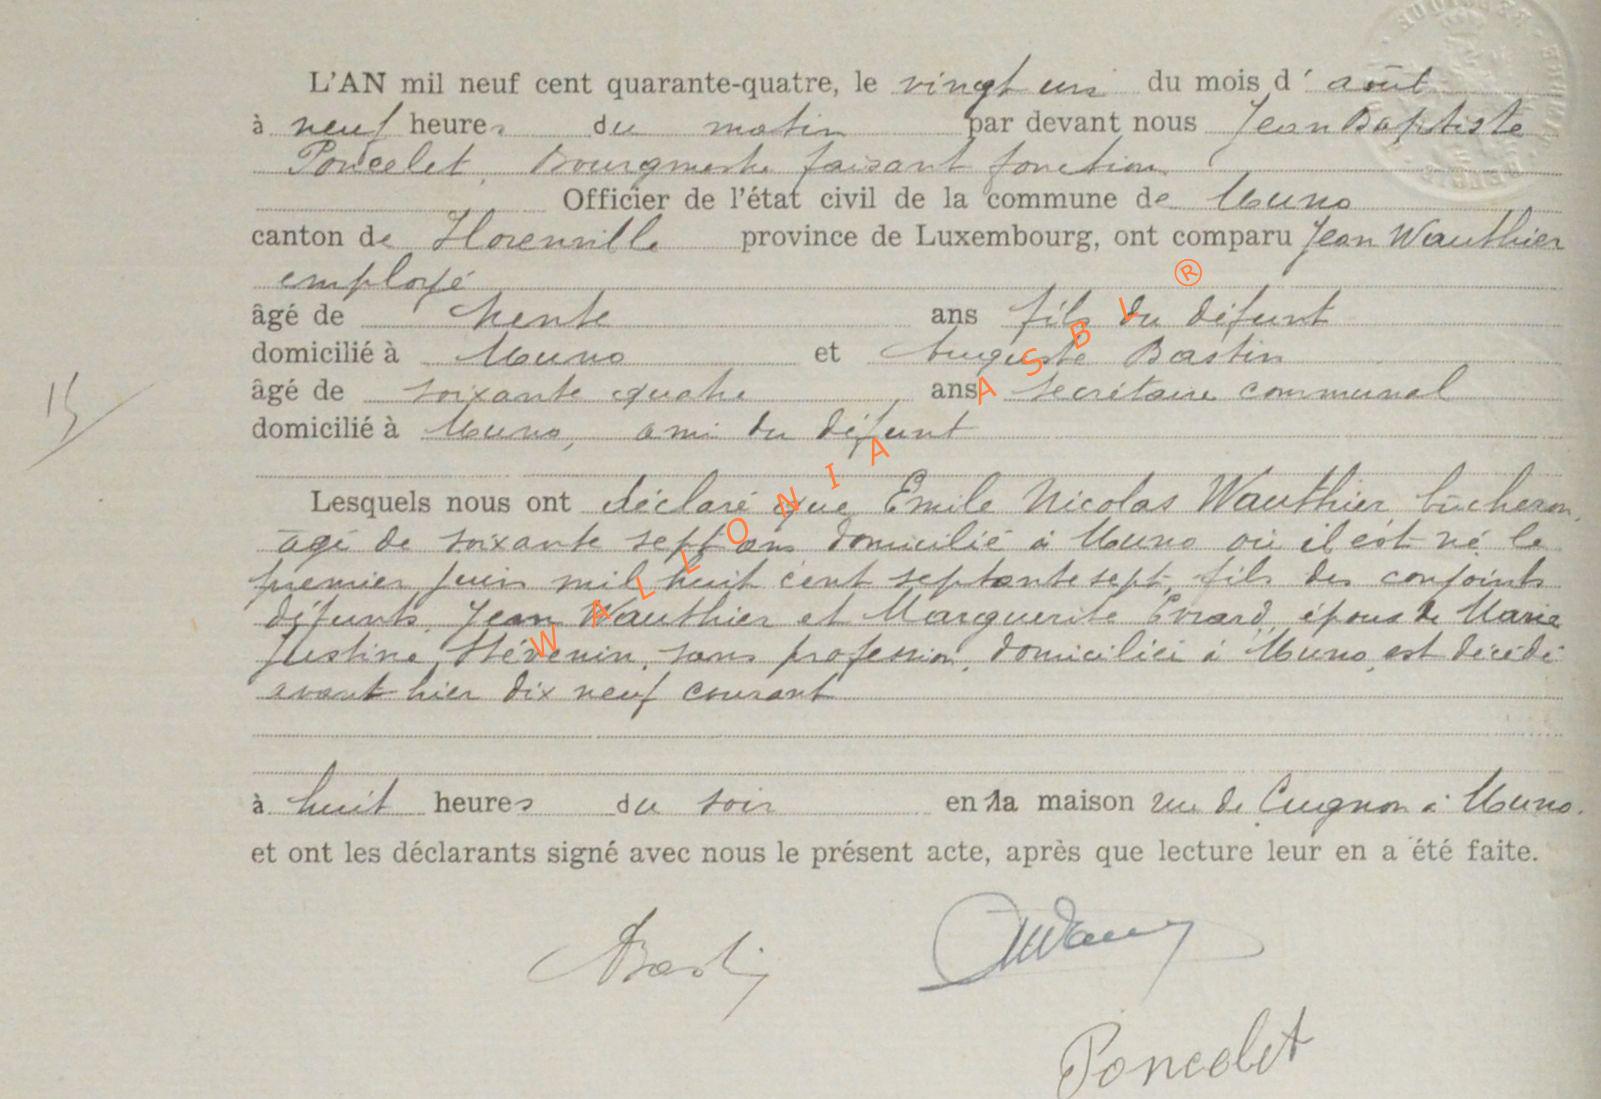 L'AN mil neuf cent quarante-quatre, le vingt un du mois d' août
à neuf heures du matin par devant nous Jean Baptiste
Poncelet, Bourgmestre faisant fonction
Officier de l'état civil de la commune de Muno
canton de Florenville province de Luxembourg, ont comparu Jean Wauthier
employé
âgé de trente ans fils du défunt
domicilié à Muno et Auguste Bastin
âgé de soixante quatre ans secrétaire communal
domicilié à Muno, ami du défunt
15
Lesquels nous ont déclaré que Emile Nicolas Wauthier bûcheron,
âgé de soixante sept ans domicilié à Muno où il est né le
premier juin mil huit cent septante sept, fils des conjoints
défunts, Jean Wauthier et Marguerite Evrard, époux de Marie
Justine Stévenin, sans profession, domiciliée à Muno, est décédé
avant hier dix neuf courant
à huit heures du soir en la maison rue de Cugnon à Muno.
et ont les déclarants signé avec nous le présent acte, après que lecture leur en a été faite.
ABastin
Poncelet
WALLONIA ASBL ®